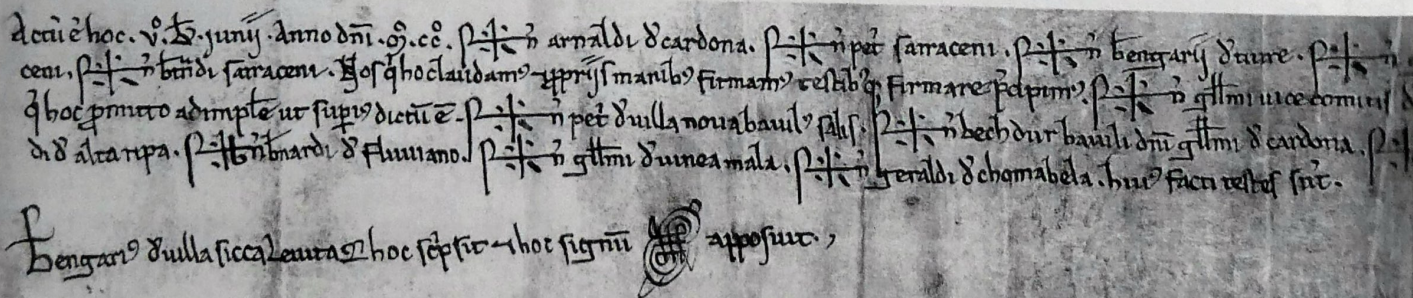 Actū ē hoc. vº. kł. junij. Anno dnī. mº. ccº. S✝n̄ arnaldi d̄ cardona. S✝n̄ pet̄ sarraceni. S✝n̄ benḡarij d̄ S✝n̄
ceni. S✝n̄ bn̄di sarraceni. Nos q̄ hoc laudamꝰ ⁊ ꝓprijs manibꝰ firmamꝰ testibꝰqꝫ firmare p̄cipimꝰ. S✝n̄ głłmi uicecomitis d̄
q̄ hoc ꝓmitto adimplē ut supiꝰ dictū ē. S✝n̄ pet̄ d̄ uilla noua bauilꝰ S✝n̄ bech d̄ur bauili dn̄i głłmi d̄ cardona. S✝
di d̄ altaripa. S✝n̄ bn̄ardi d̄ fluuiano. S✝n̄ głłmi d̄ uinea mala. S✝n̄ geraldi d̄ chomabela. huiꝰ facti testes sūt.
benḡariꝰ d̄ uilla sicca leuita q̄ hoc sc̄psit ⁊ hoc signū apposuit.